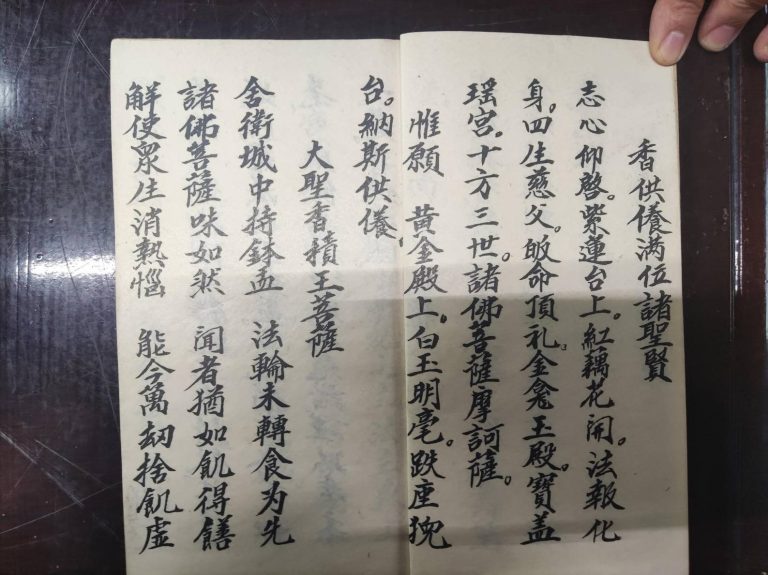 香供養满位諸聖賢
志心仰啓。紫蓮台上。紅藕花開。法報化
身。四生慈父。皈命頂礼。金龛玉殿。寶盖
瑶宮。十方三世。諸佛菩薩摩訶薩。
惟願 黄金殿上。白玉明毫。跌座猊
台。納斯供養
大聖香積王菩薩
舍衛城中持鉢盂 法輪未轉食为先
諸佛菩薩味如然 聞者猶如飢得饍
解使眾生消熱惱 能令萬劫捨飢虛